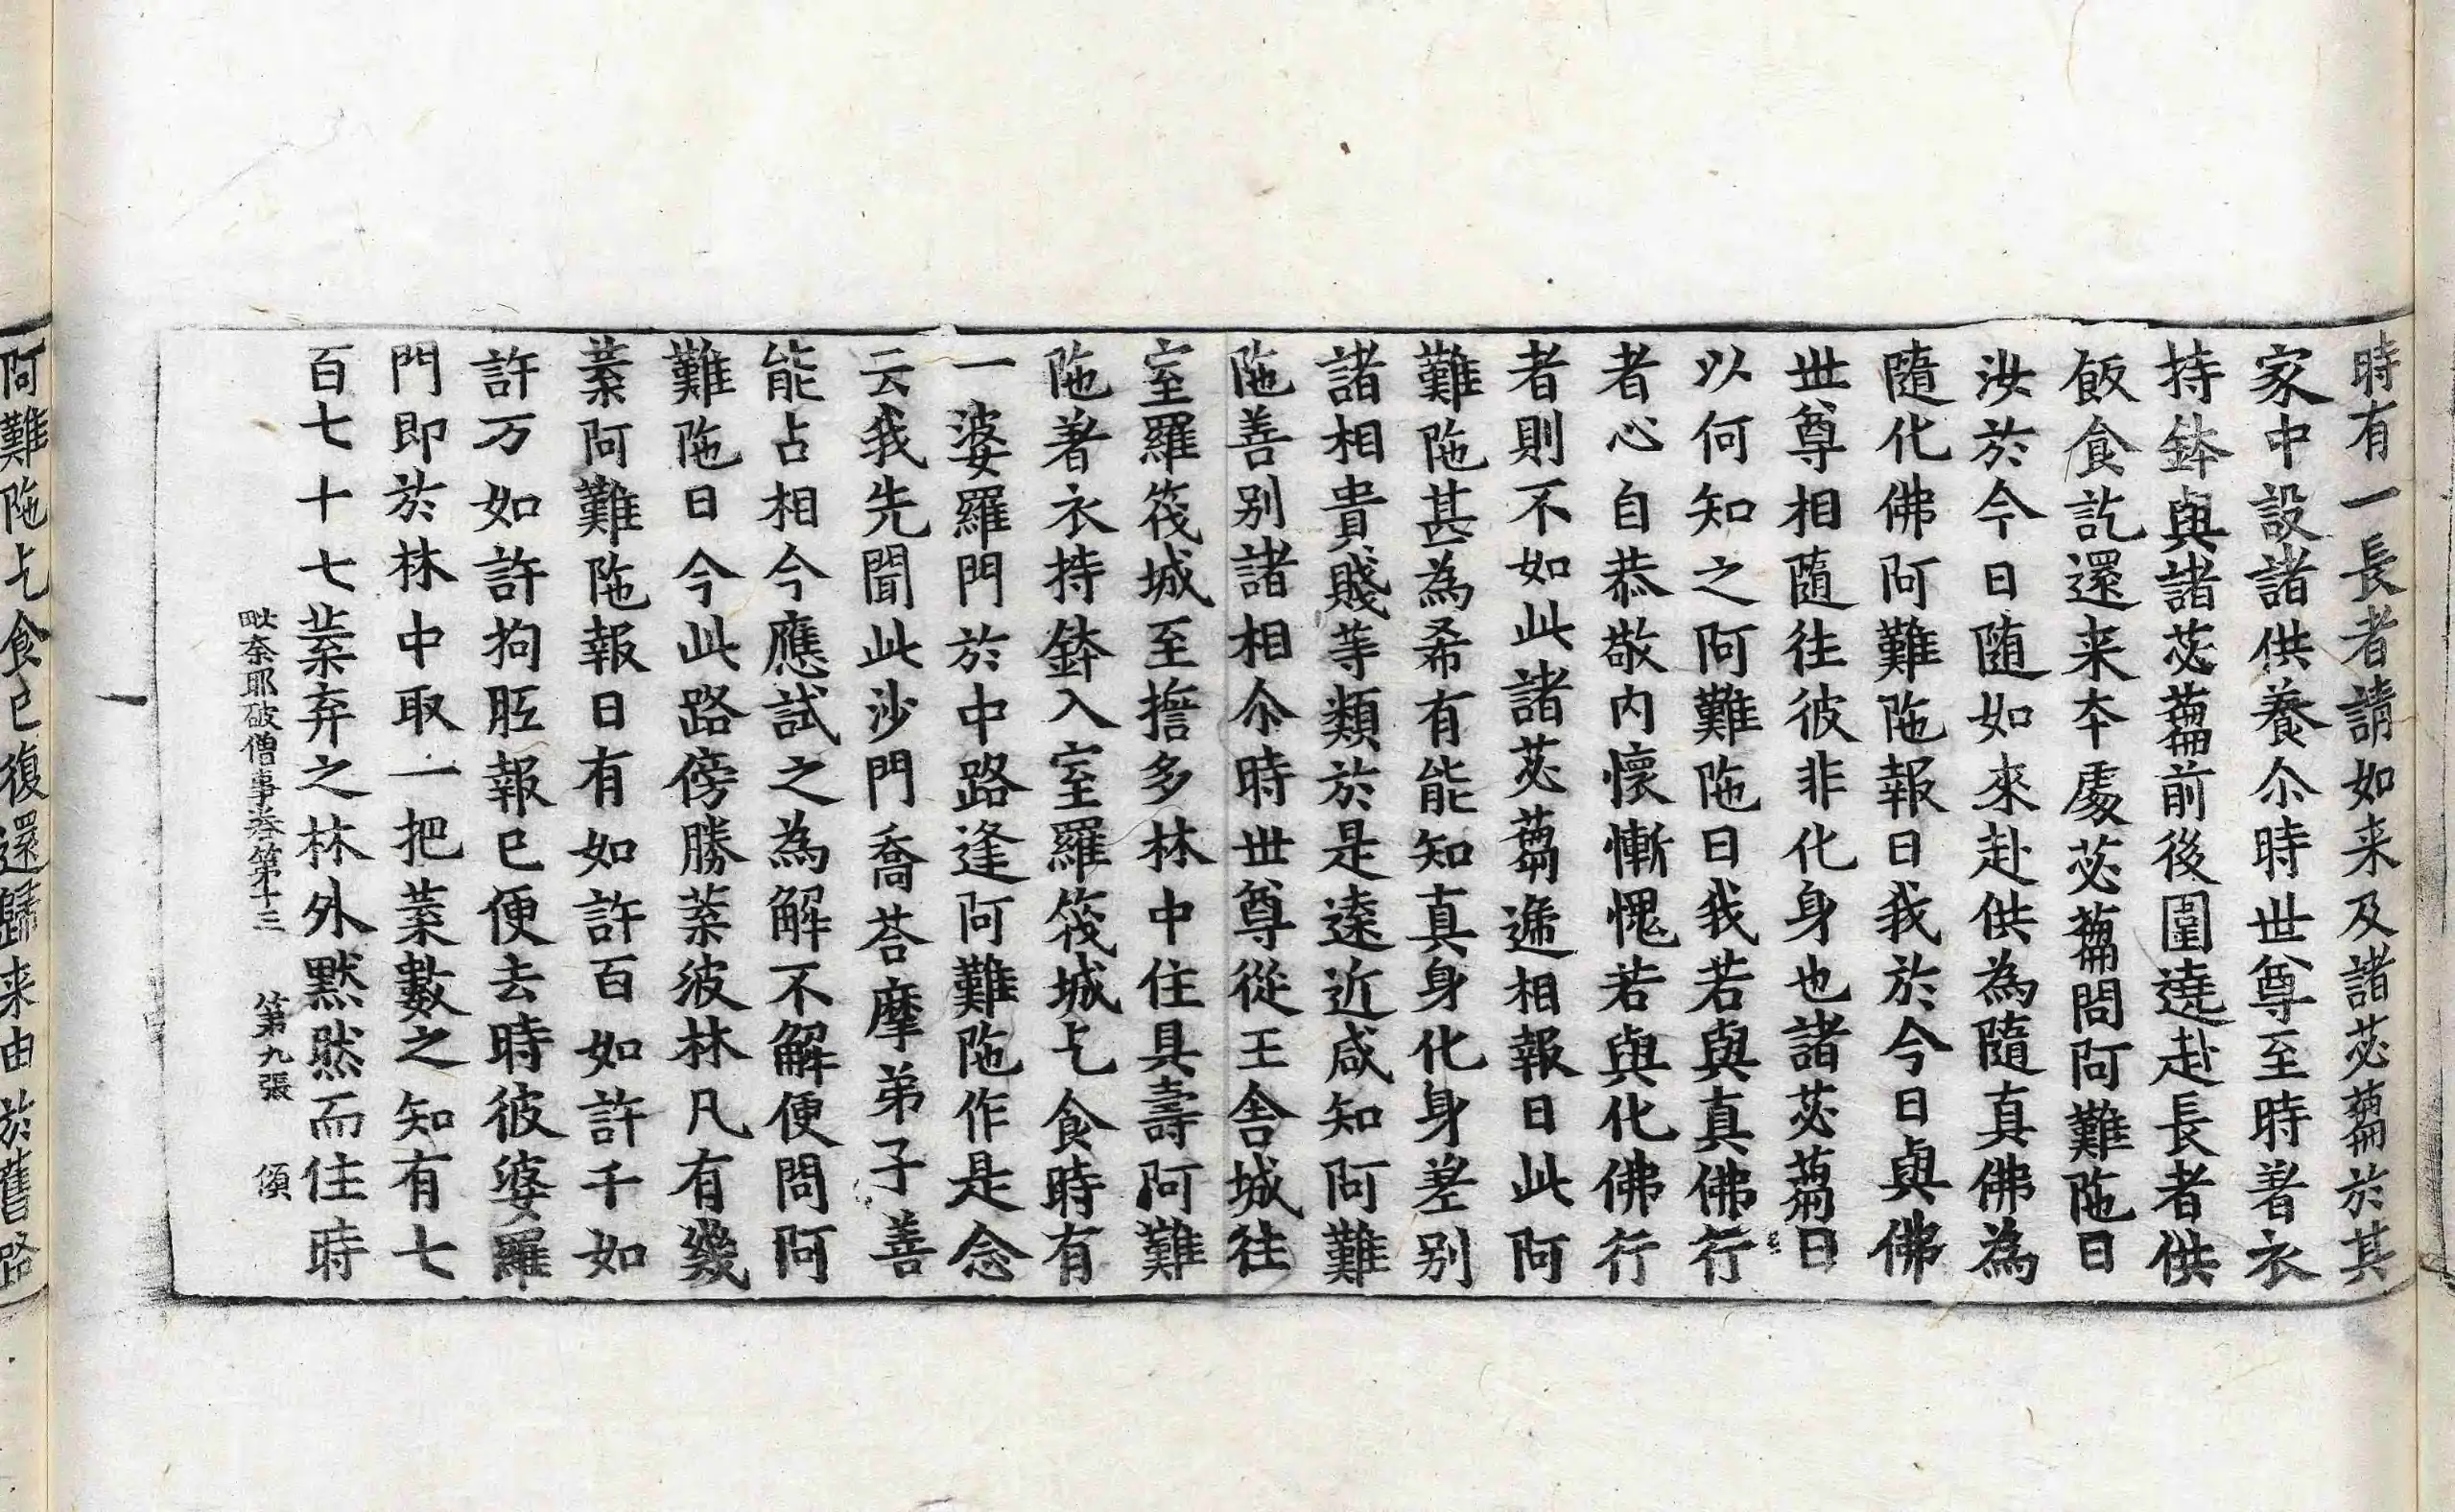 時有一長者請如来及諸苾蒭於其
家中設諸供養尒時世尊至時著衣
持鉢與諸苾蒭前後圍遶赴長者供
飯食訖還来夲處苾蒭問阿難陁曰
汝於今日随如來赴供為隨真佛為
隨化佛阿難陁報曰我於今日與佛
世尊相隨往彼非化身也諸苾蒭曰
以何知之阿難陁曰我若與真佛行
者心自恭敬内懷慚愧若與化佛行
者則不如此諸苾蒭遞相報曰此阿
難陁甚為希有能知真身化身差别
諸相貴賤等類於是遠近咸知阿難
陁善别諸相尒時世尊從王舍城往
室羅筏城至擔多林中住具壽阿難
陁著衣持鉢入室羅筏城乞食時有
一婆羅門於中路逢阿難陁作是念
云我先聞此沙門喬荅摩弟子善
能占相今應試之為解不解便問阿
難陁曰今此路傍勝葉波林凡有幾
葉阿難陁報曰有如許百如許千如
許万如許拘胝報已便去時彼婆羅
門即於林中取一把葉數之知有七
百七十七葉弃之林外默然而住時
毗奈耶破僧事卷第十三 第九張 傾
阿難陁乞食已復還歸来由於舊路